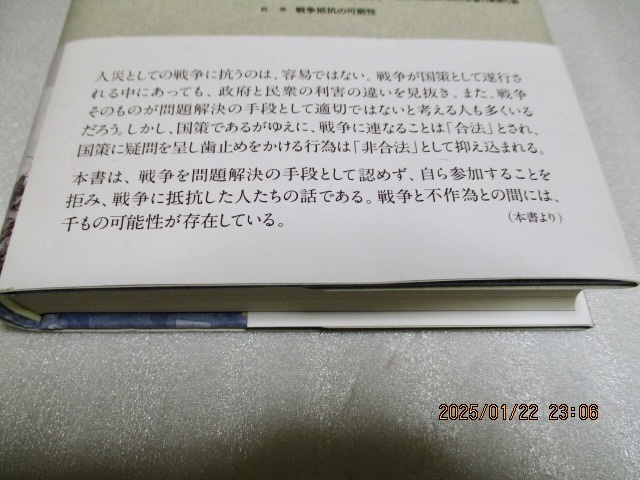 終章 戦争抵抗の可能性
人災としての戦争に抗うのは、容易ではない。戦争が国策として遂行さ
れる中にあっても、政府と民衆の利害の違いを見抜き、また、戦争
そのものが問題解決の手段として適切ではないと考える人も多くいる
だろう。しかし、国策であるがゆえに、戦争に連なることは「合法」とされ、
国策に疑問を呈し歯止めをかける行為は「非合法」として抑え込まれる。
本書は、戦争を問題解決の手段として認めず、自ら参加することを
拒み、戦争に抵抗した人たちの話である。戦争と不作為との間には、
千もの可能性が存在している。
（本書より）
2025/01/22 23:06